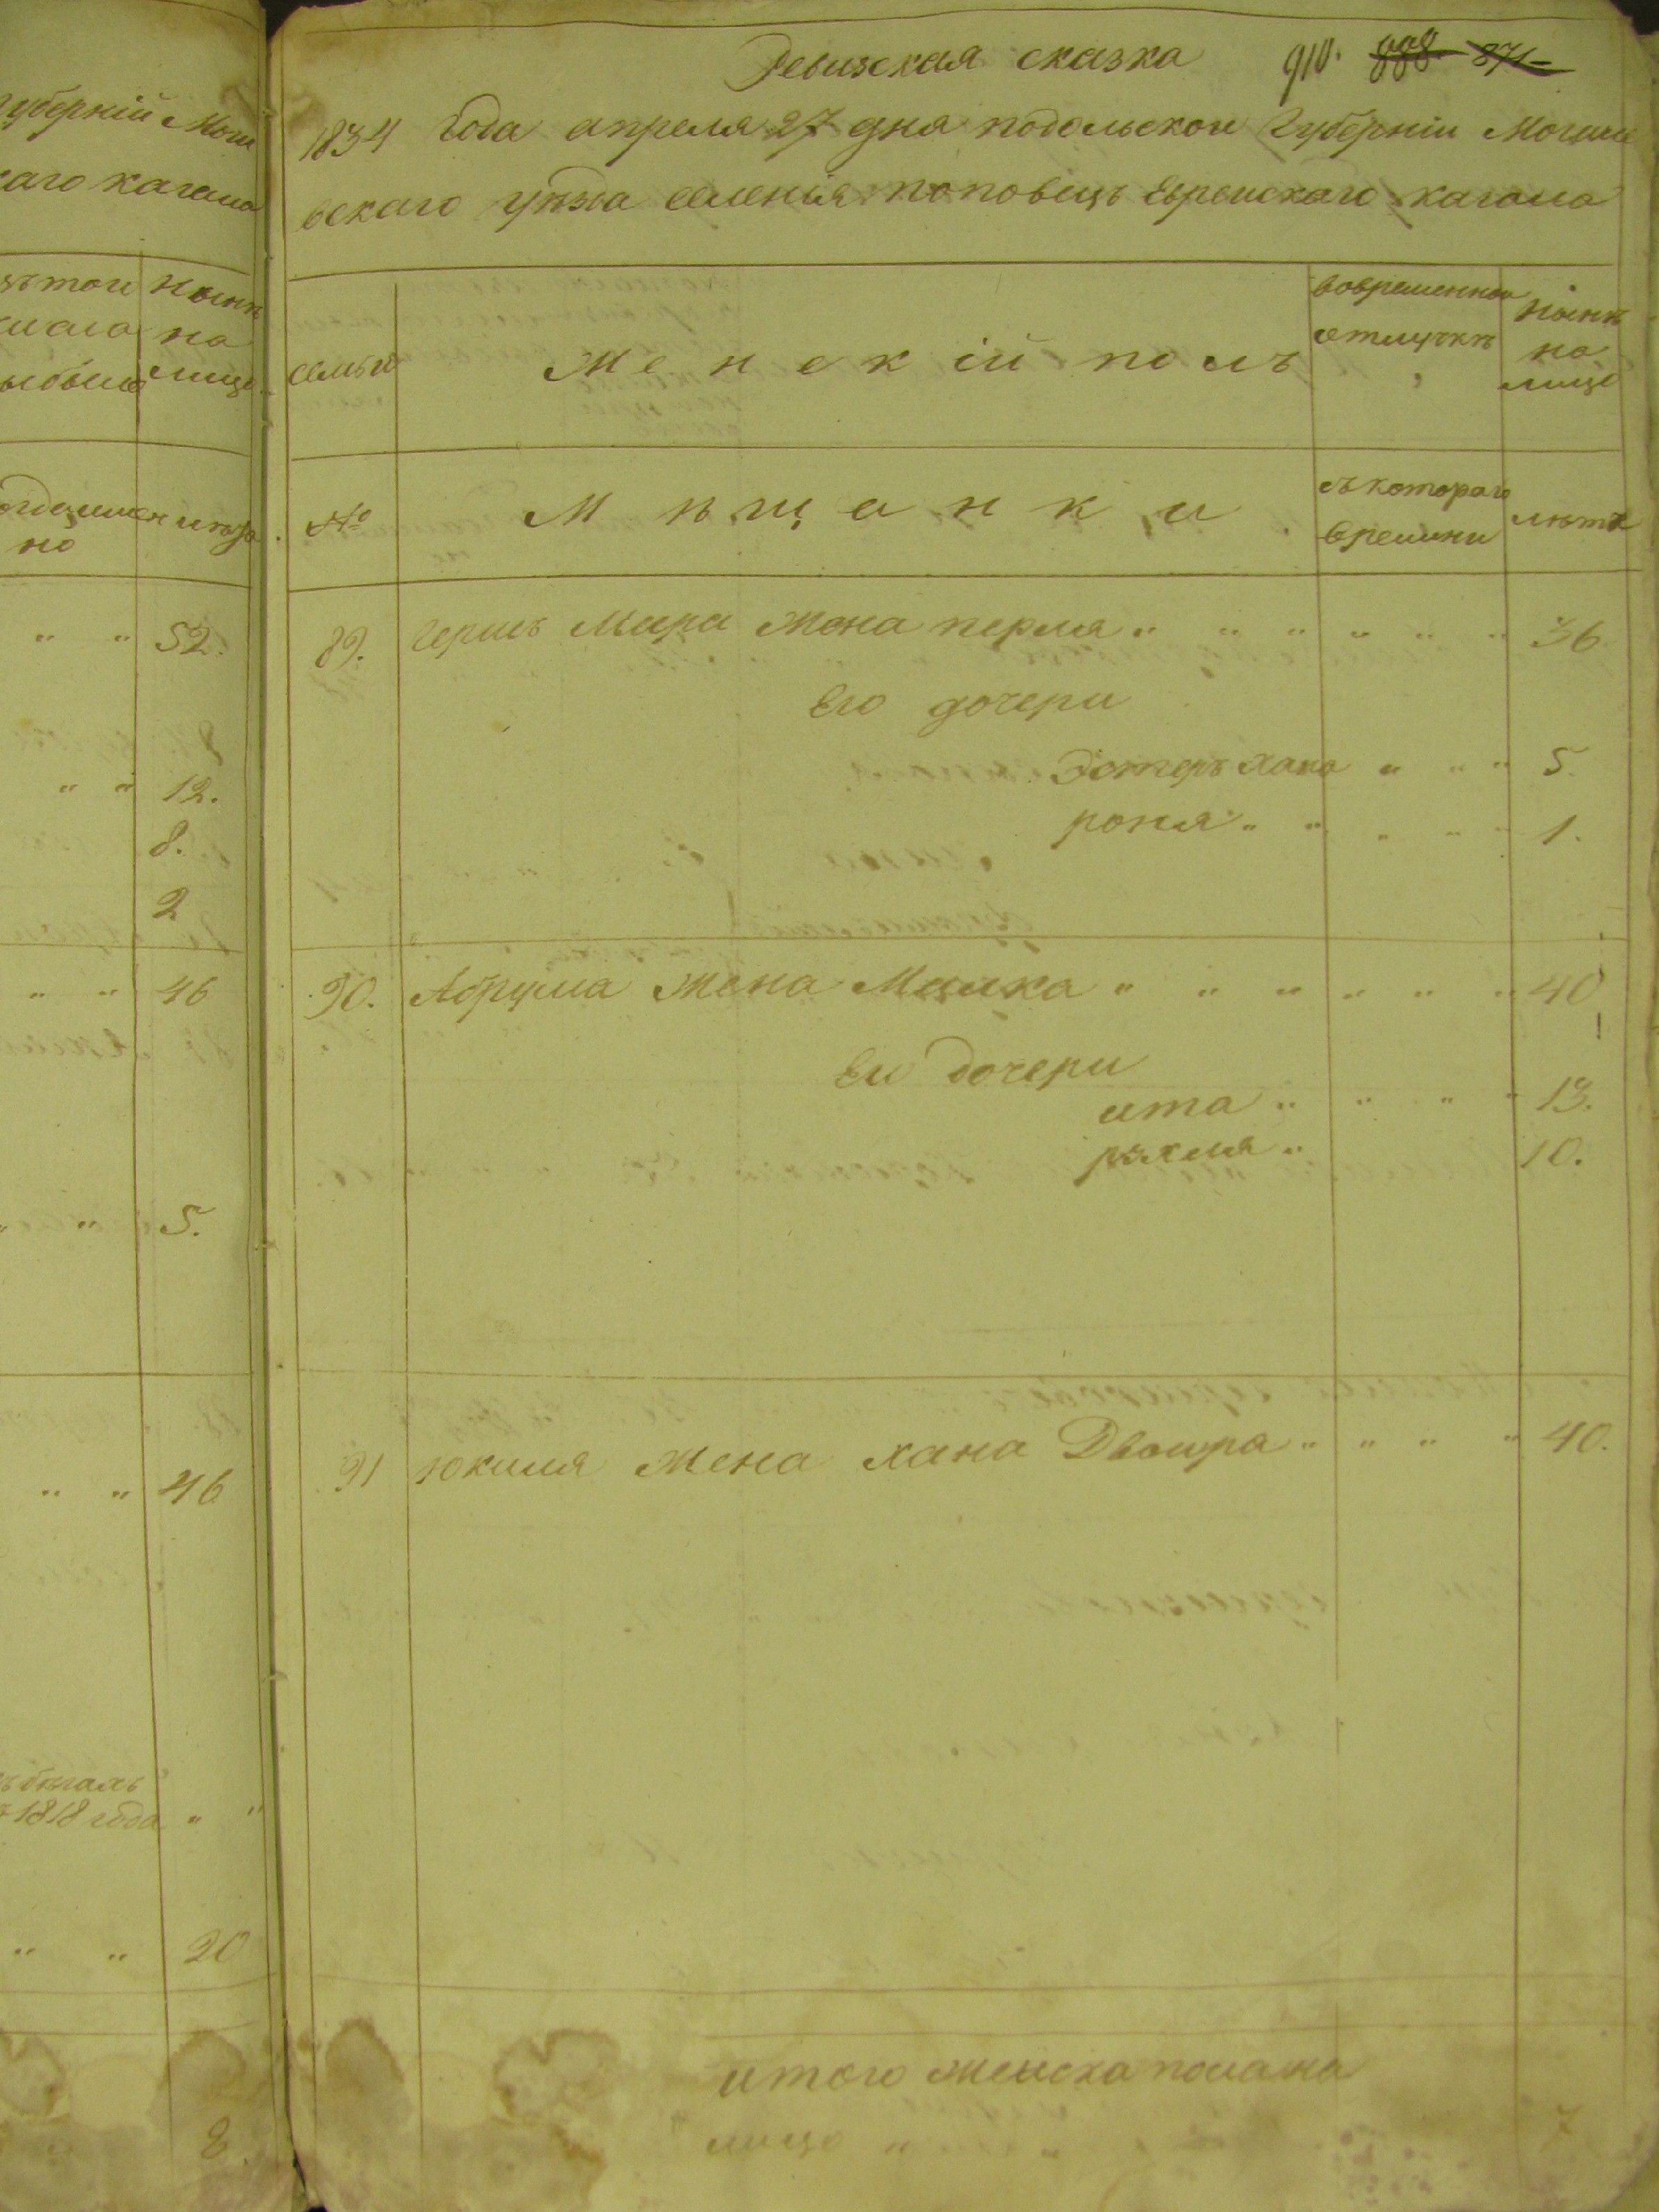 губерній Моги
каго кагала
ныне
на
лице
но
52.
8
12.
8.
2
46
5.
46
1818 года
20
8.
Ревизская сказка 910. 888. 871
1834 Года апреля 27 дня подольской Губерніи Могиле
вскаго уѣзда селенія поповецъ Еврейскаго кагала
семьи
Женскій полъ
вовременной
отлучкѣ
нынѣ
на
лицо
№
Мѣщанки
съ котораго
времини
лѣта
89. Гершъ Меера жена перля 36
Его дочери
Эстеръ хана 5.
роня 1.
90. Абрума жена Малка 40
Ен дочери
ита 13.
рахля 10.
91 юкиля жена хана Двоира 40.
итого женска пола на
лицо 7